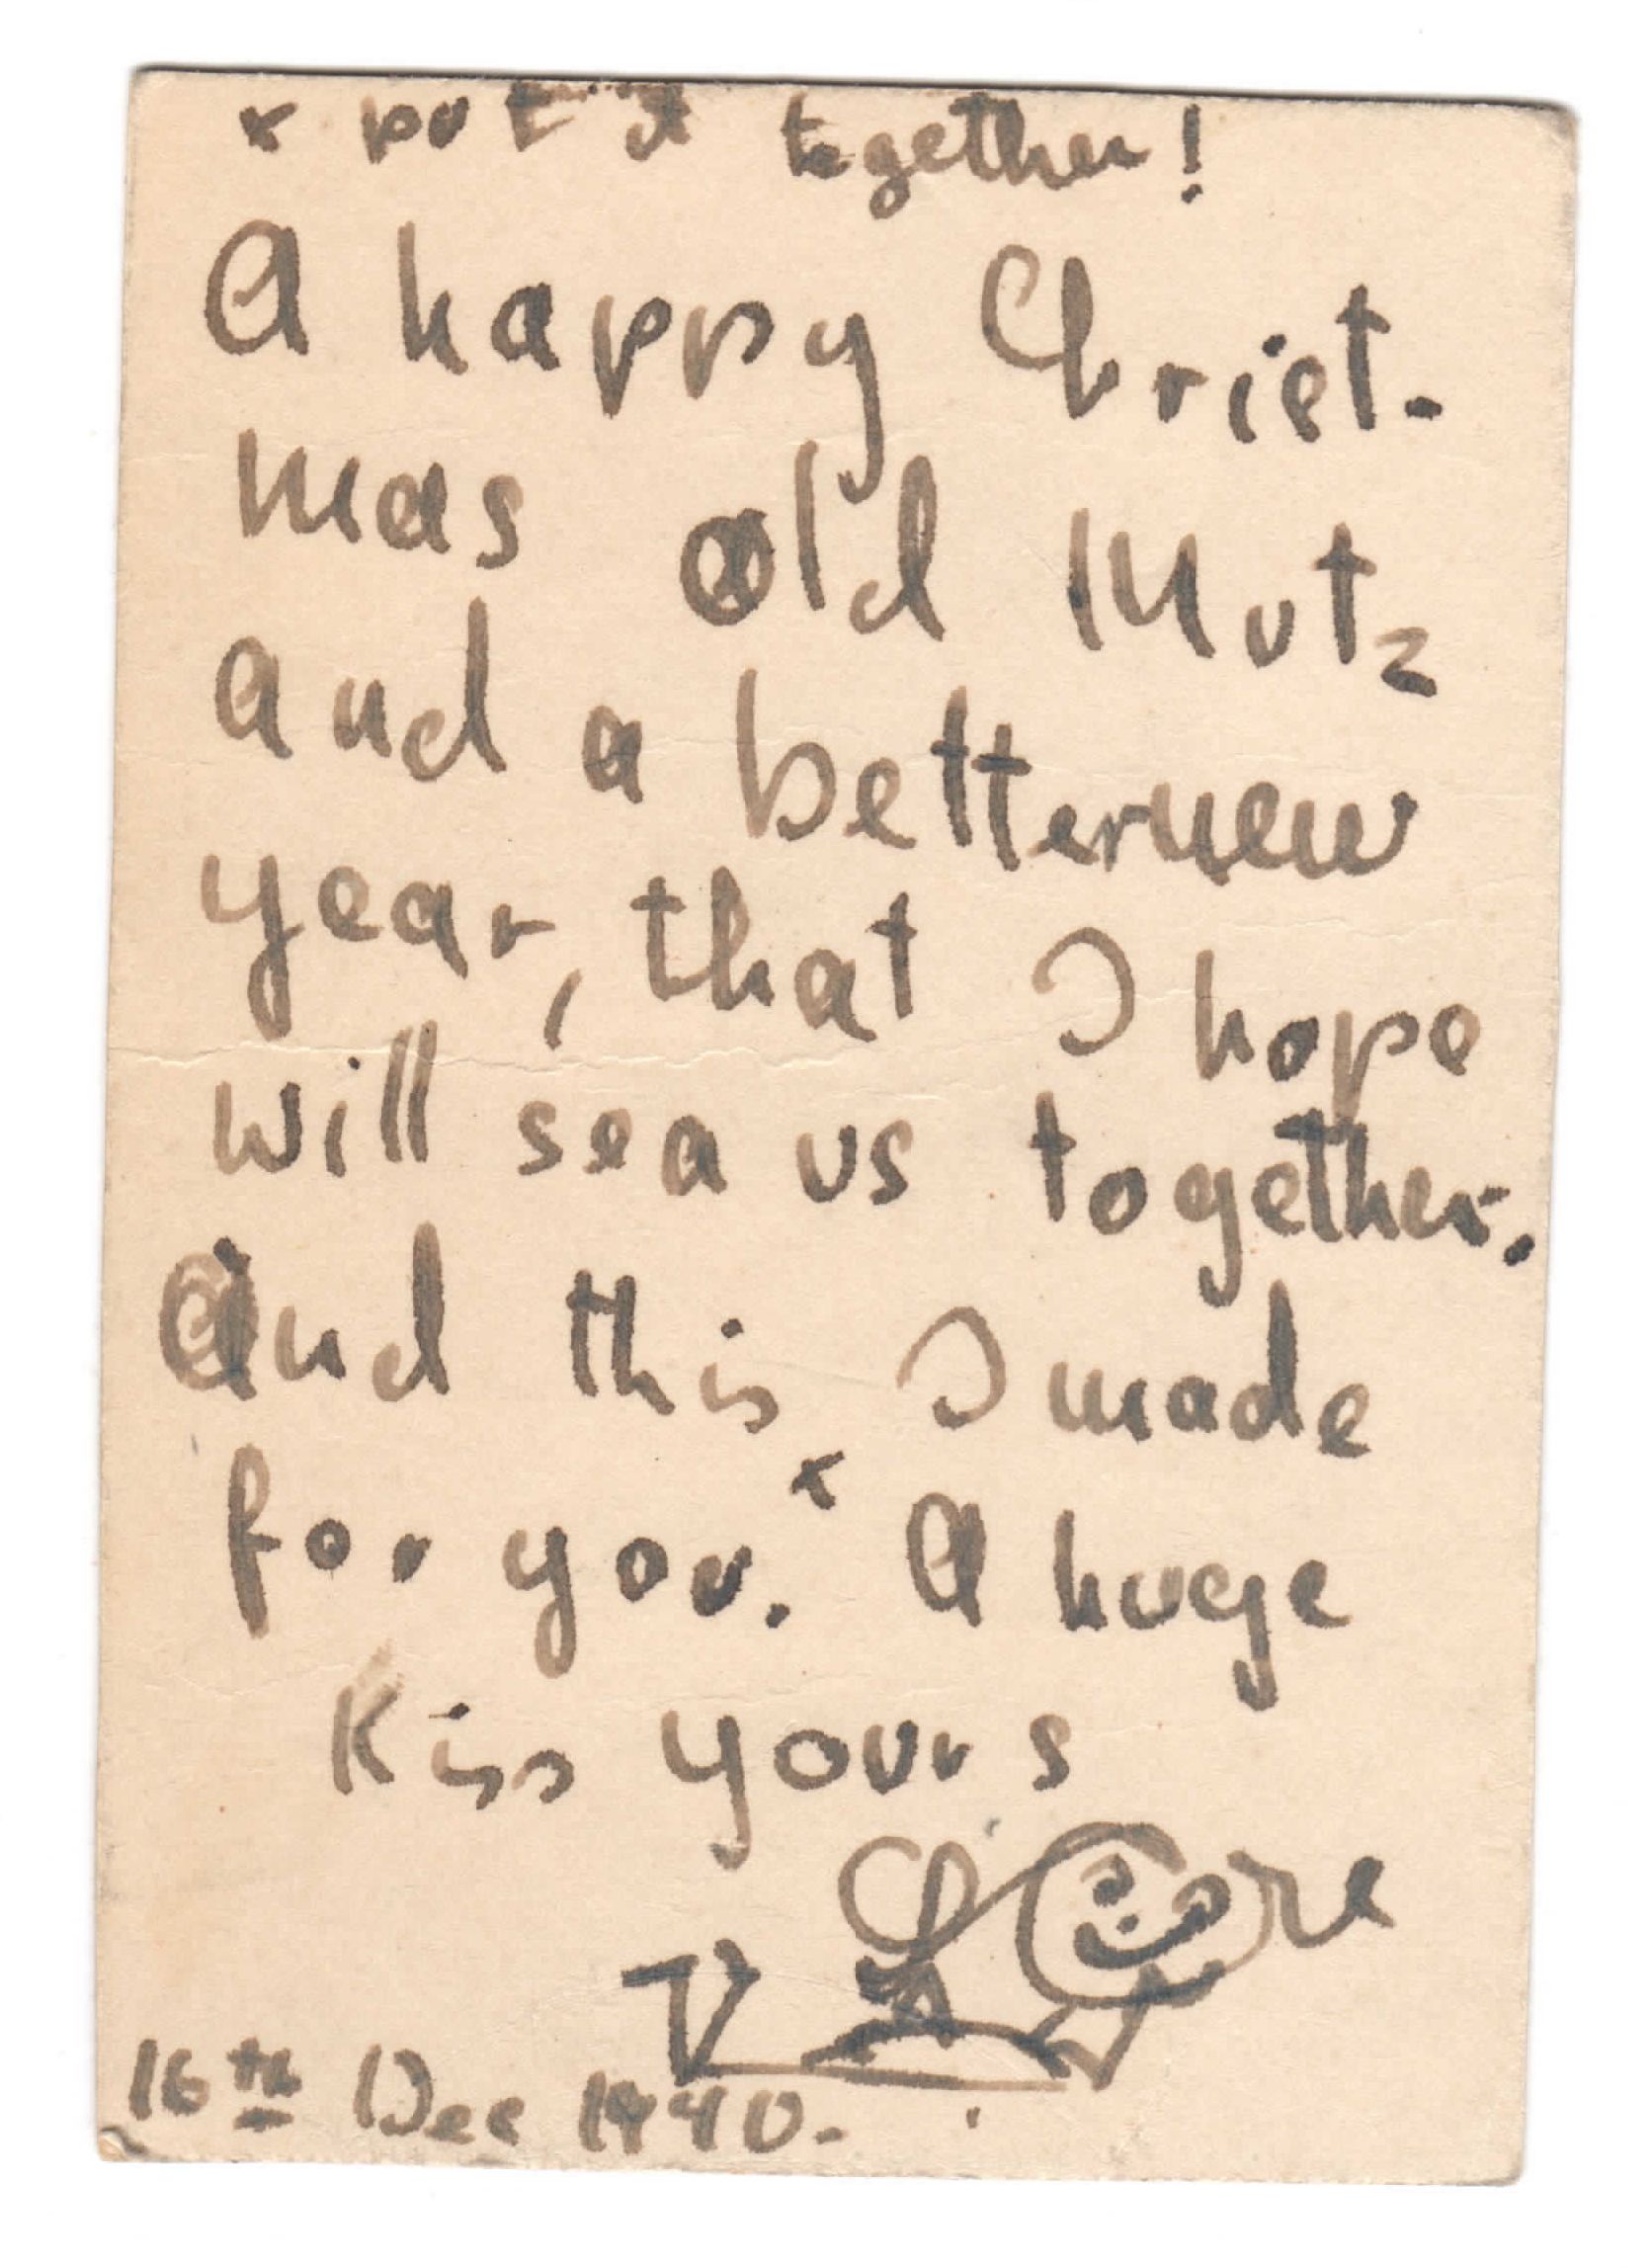 x put it together!
A happy Christ-
mas old Mutz
and a betternew
year, that I hope
will sea us together.
And this I made
for you.x A huge
Kiss yours
Lore
16th Dec 1940.